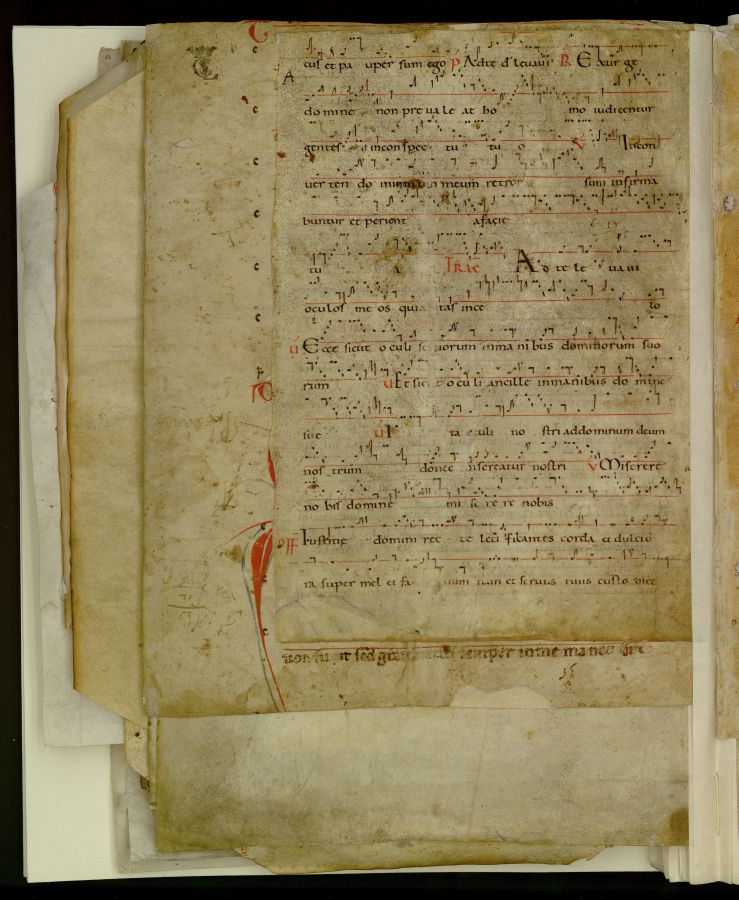 cus et pa uper sum ego p Adte d leuaui R E xur ge
domine non pre ua le at ho mo iudicentur
gentes inconspec tu tu o V Incon
uer ten do meum retror sum infirma
buntur et perient afacie
tu a TRAC A d te le uaui
oculos me os qui tas ince lo
V Ecce sicut oculi uorum inma nibus dominorum suo
rum V Et sic oculi ancille inmanibus do mine
sue V I ta culi no stri addominum deum
nos trum donec misereatur nostri V Miserere
no bis domine mi se re re nobis
off Iustitie domini rec te leti ficantes corda et dulcio
ra super mel et fa uum nam et seruus tuus custo diet
semper